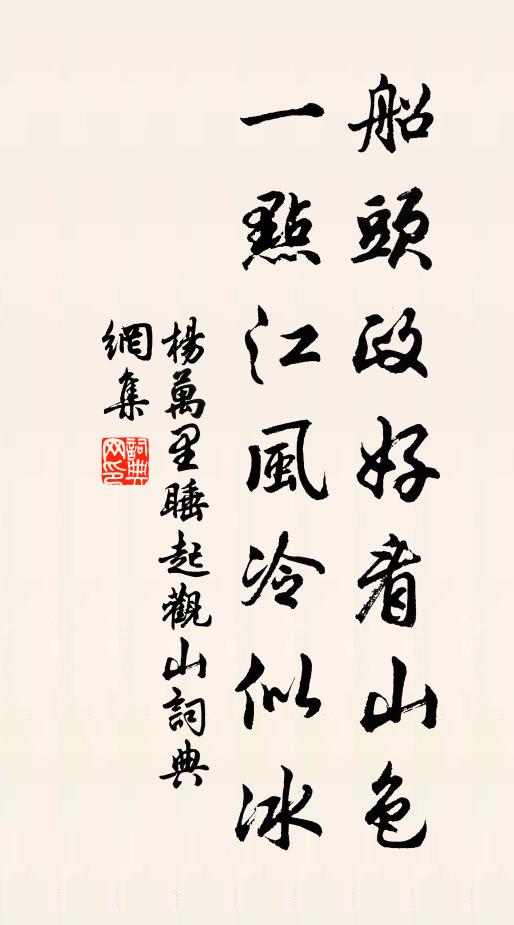 船頭政好看山色
一點江風冷似冰
楊萬里睡起觀山詞典
網集
詞典
网印